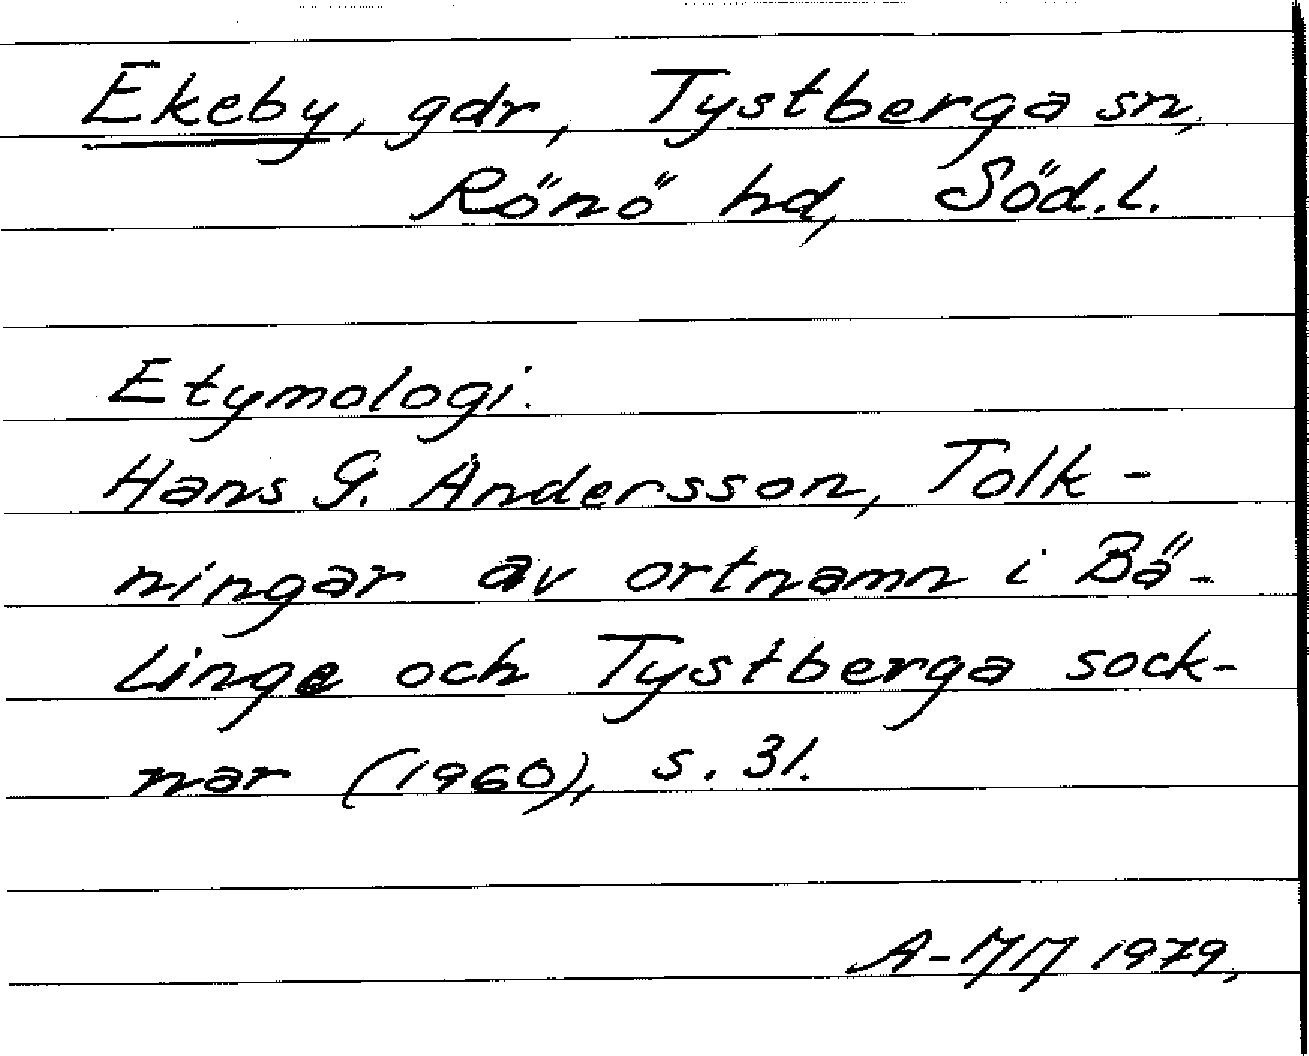 Ekeby, gdr, Tystberga sn,
Rönö hd, Söd.l.
Etymologi.
Hans G. Andersson, Tolk-
ningar av ortnamn i Bä-
linge och Tystberga sock-
nar (1960), s. 31.
A-MM 1979,